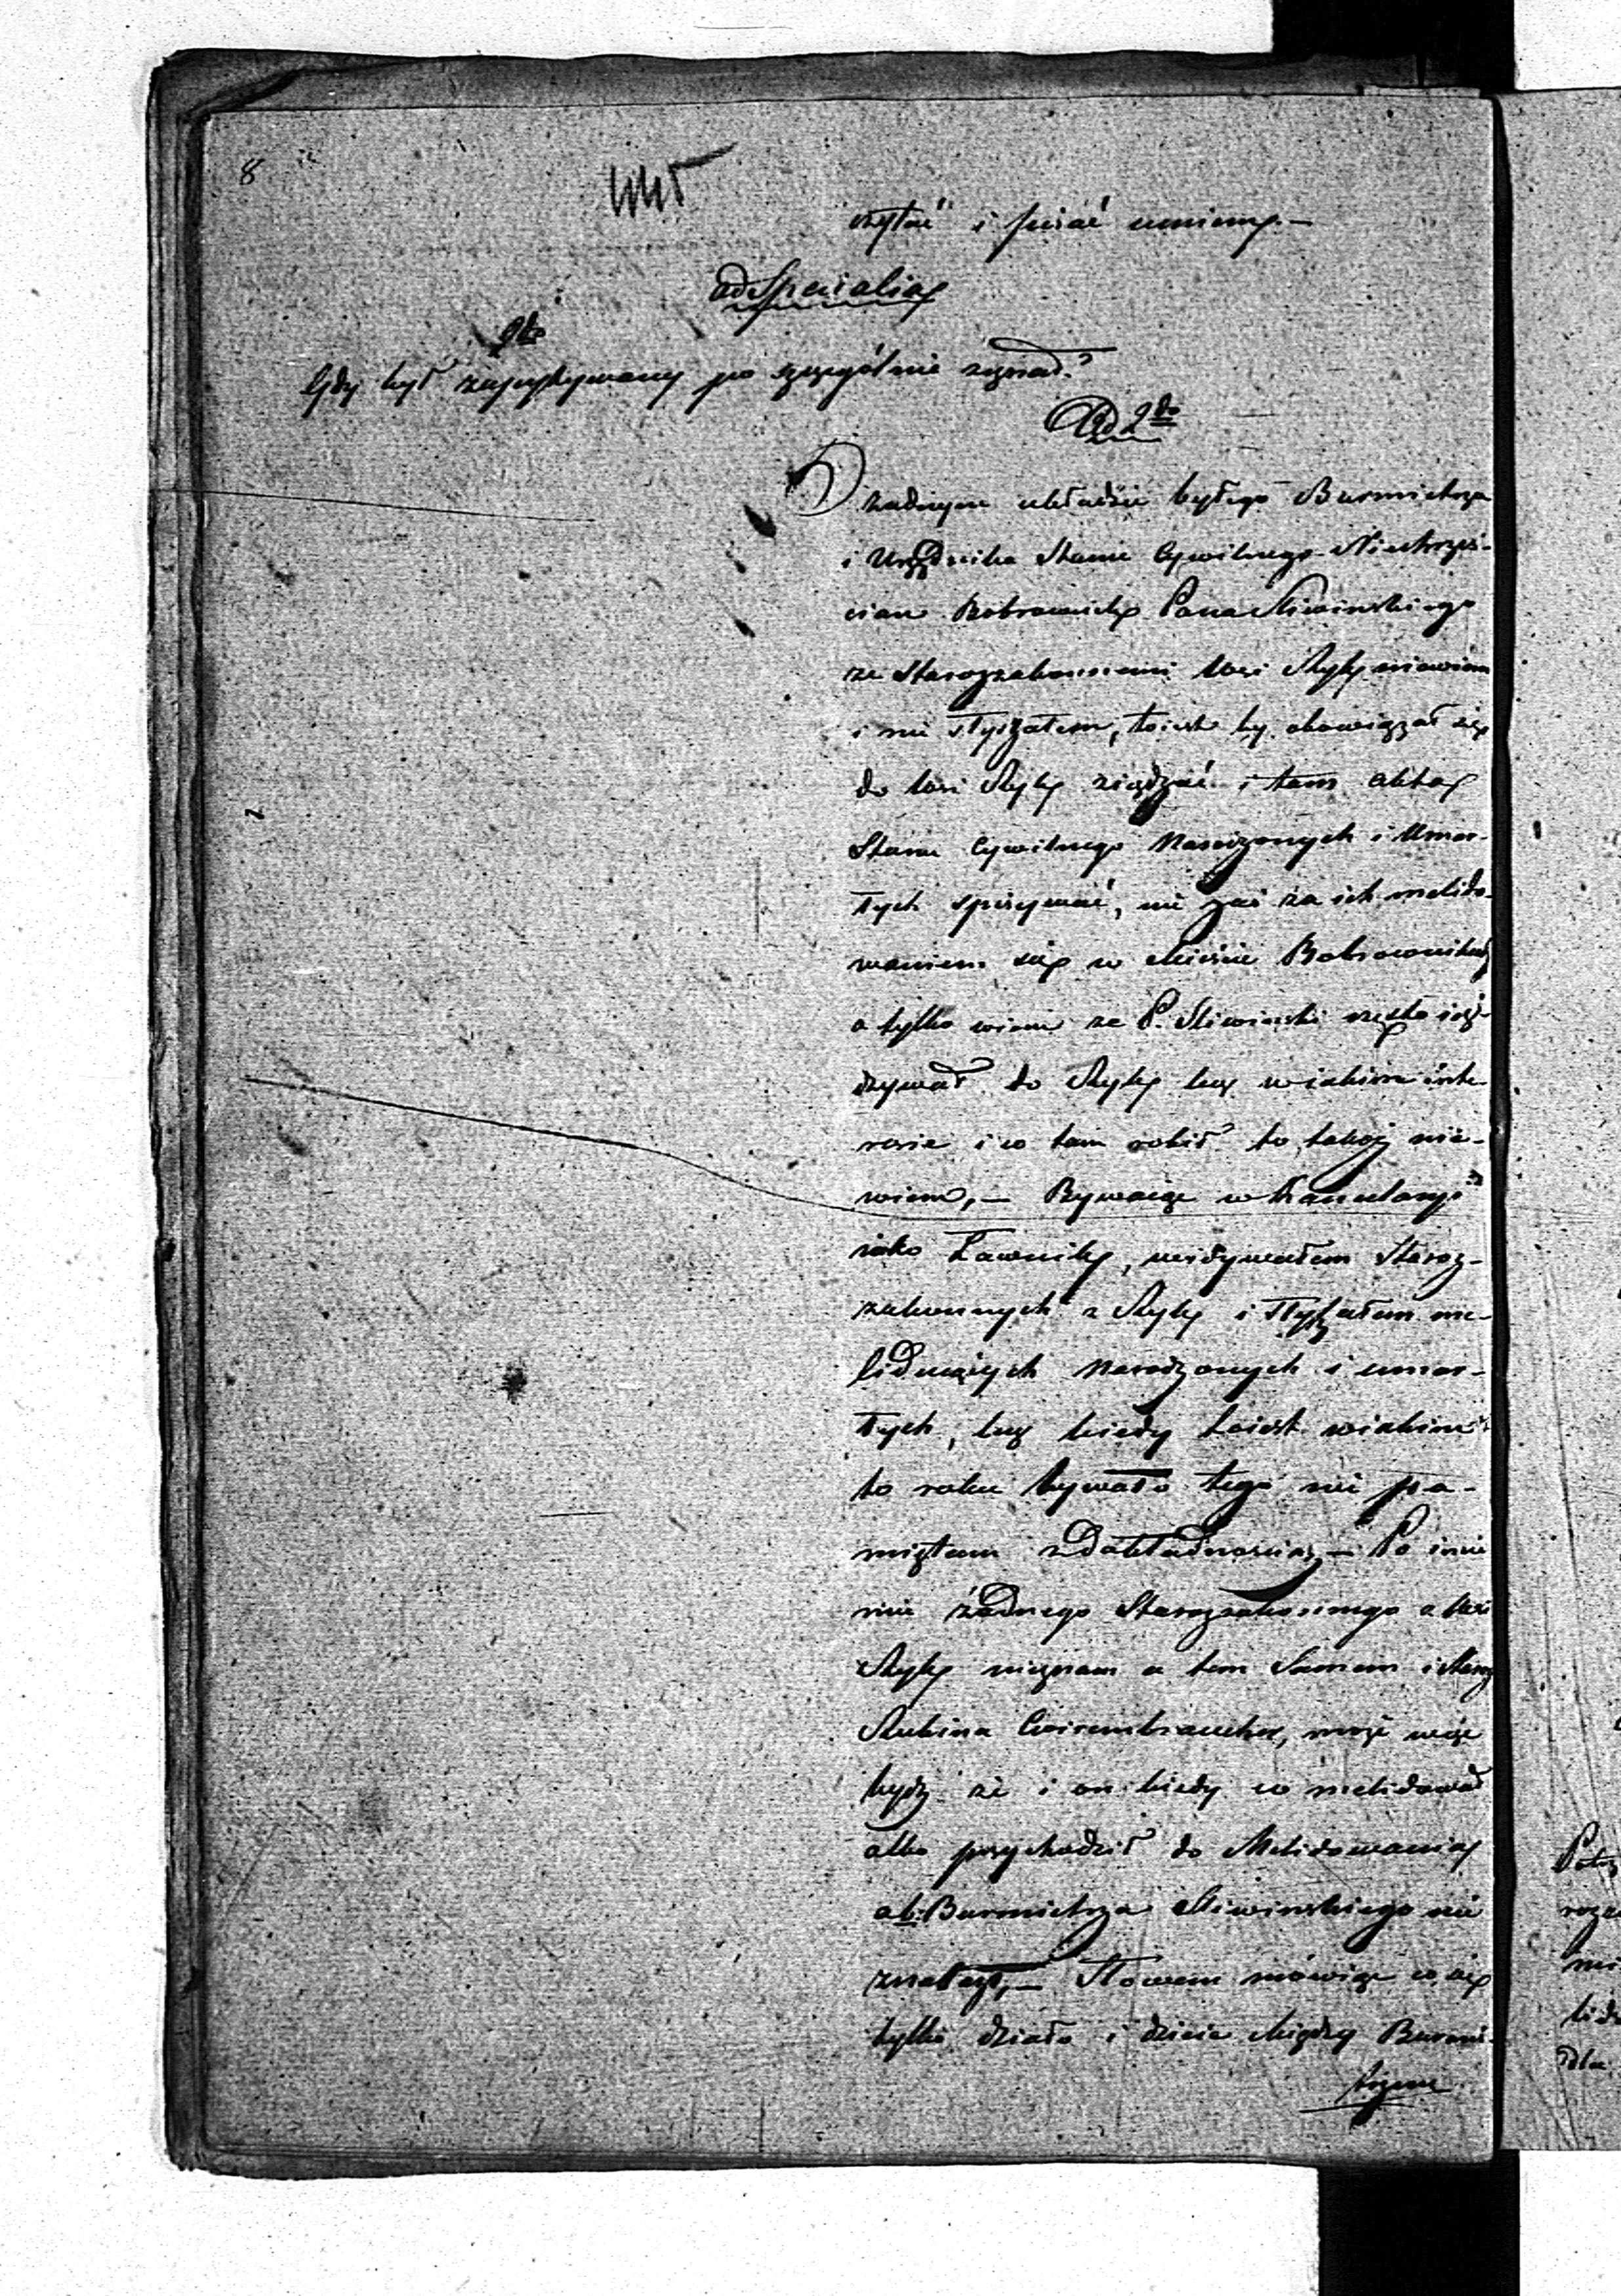 8
czytać i pisać umiemy. —
ad Specialia
2do
Gdy był zapytywany po szczególnie zeznał?
Ad 2do
O żadnym układzie byłego Burmistrza
i Urzędnika Stanu Cywilnego Niechrześ-
cian Bobrowniki Pana Sliwinskiego
ze Starozakonnemi wsi Ryki niewiem
i nie słyszałem, toiest by obowiązał się
do wsi Ryki ziądzać i tam akta
Stanu Cywilnego Narodzonych i Umar-
łych spisywać, nie zaś za ich meldo-
waniem się w Mieście Bobrownikach
a tylko wiem ze P. Sliwinski często ież-
dzywał do Ryki lecz w iakim inte-
resie i co tam robił to także nie-
wiem, — Bywaiąc w Kancelaryi
iako Ławnik, widywałem Staroz-
zakonnych z Ryki i słyszałem me-
lduiących Narodzonych i umar-
łych, lecz kiedy toiest w iakim
to roku bywało tego nie pa-
miętam z dokładnością — Po imie
niu żadnego Starozakonnego z wsi
Ryki nieznam a tem samem i Staroz
Rubina, może więc
bydź że i on kiedy co meldował
albo przychodził do Meldowania
a b: Burmistrza Sliwinskiego nie
znalazł, — Słowem mówiąc co się
tylko działo i dzieie Między Burmi-
strzem